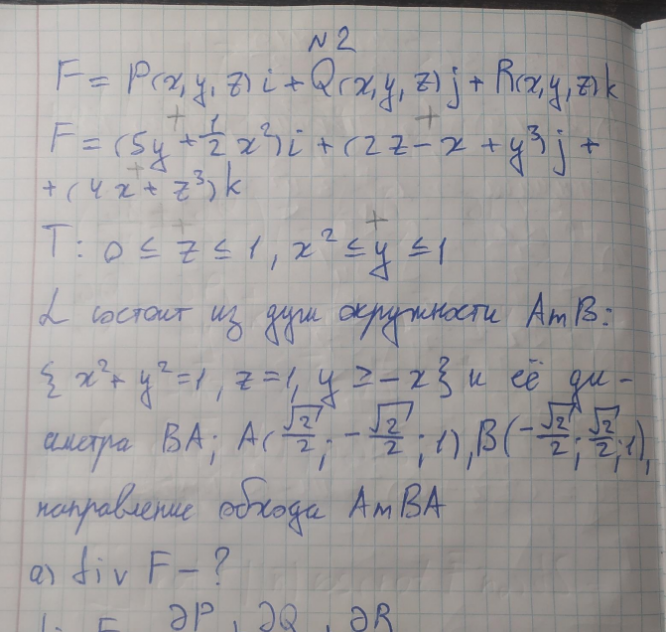 N2
F = P(x, y, z) i + Q(x, y, z) j + R(x, y, z) k
F = (5y + 1/2 x²) i + (2z - x + y³) j +
+ (4x + z³) k
T: 0 ≤ z ≤ 1, x² ≤ y ≤ 1
L состоит из дуги окружности AmB:
{ x² + y² = 1, z = 1, y ≥ -x } и её ди-
аметра BA; A(√2/2; -√2/2; 1), B(-√2/2; √2/2; 1),
направление обхода AmBA
a) div F - ?
∂P, ∂Q, ∂R